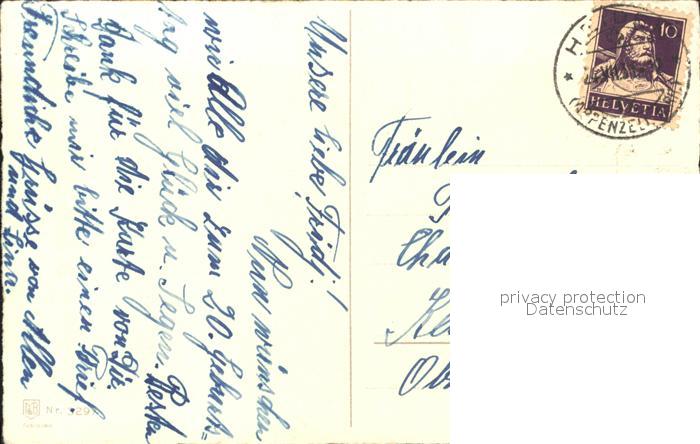 Unsere liebe Fridj!
Nun wünschen
wir Alle dir zum 20. Geburts=
tag viel Glück u. Segen. Besten
Dank für die Karte von Dir.
Schreibe mir bitte einen Brief
Freundliche Grüsse von Allen
und Lina.
Fräulein
Cha
Kl
Ob
10
HELVETIA
(APPENZELL
Nr.
privacy protection
Datenschutz